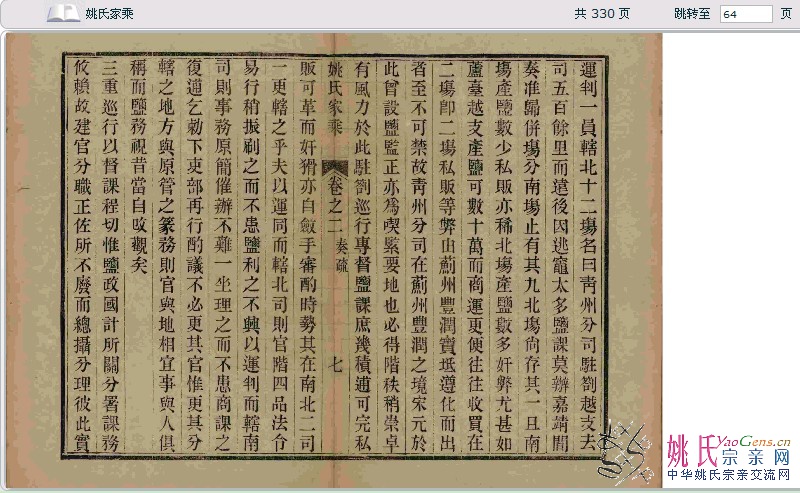 姚氏家乘
共 330 页
跳转至 64 页
运判一員轄北十二塲名曰靑州分司駐劄越支去
司五百餘里而遠後因逃竈太多鹽課莫辦嘉靖間
奏准歸併塲分南塲止有其九北塲尙存其一且南
塲產鹽數少私販亦稀北塲產鹽數多奸弊尤甚如
蘆臺越支產鹽可數十萬而商運更便往往收買在
二塲卽二塲私販等弊由薊州豐潤寶坻遵化而出
者至不可禁故靑州分司在薊州豐潤之境宋元於
此曾設鹽監正亦爲喫緊要地也必得階秩稍崇卓
有風力於此駐劄巡行專督鹽課庶幾積逋可完私
姚氏家乘 卷之二 奏疏 七
販可革而奸猾亦自斂手審酌時勢其在南北二司
一更轄之乎夫以運同而轄北司則官階四品法令
易行稍振刷之而不患鹽利之不興以運判而轄南
司則事務原簡催辦不難一坐理之而不患商課之
復逋乞勅下吏部再行酌議不必更其官惟更其分
轄之地方與原管之篆務則官與地相宜事與人俱
稱而鹽務視昔當自改觀矣
三重巡行以督課程切惟鹽政國計所關分署課務
攸賴故建官分職正佐所不廢而總攝分理彼此實
姚氏宗亲网
YaoGens.cn
中华姚氏宗亲交流网